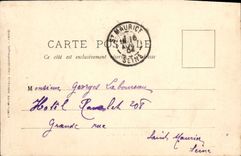 ST MAURICE
16
04
SEINE
CARTE POSTALE
Ce côté est exclusivement réservé à l'adresse
Monsieur Georges Laboureau
Hotel
Grande rue
Saint Maurice
Seine